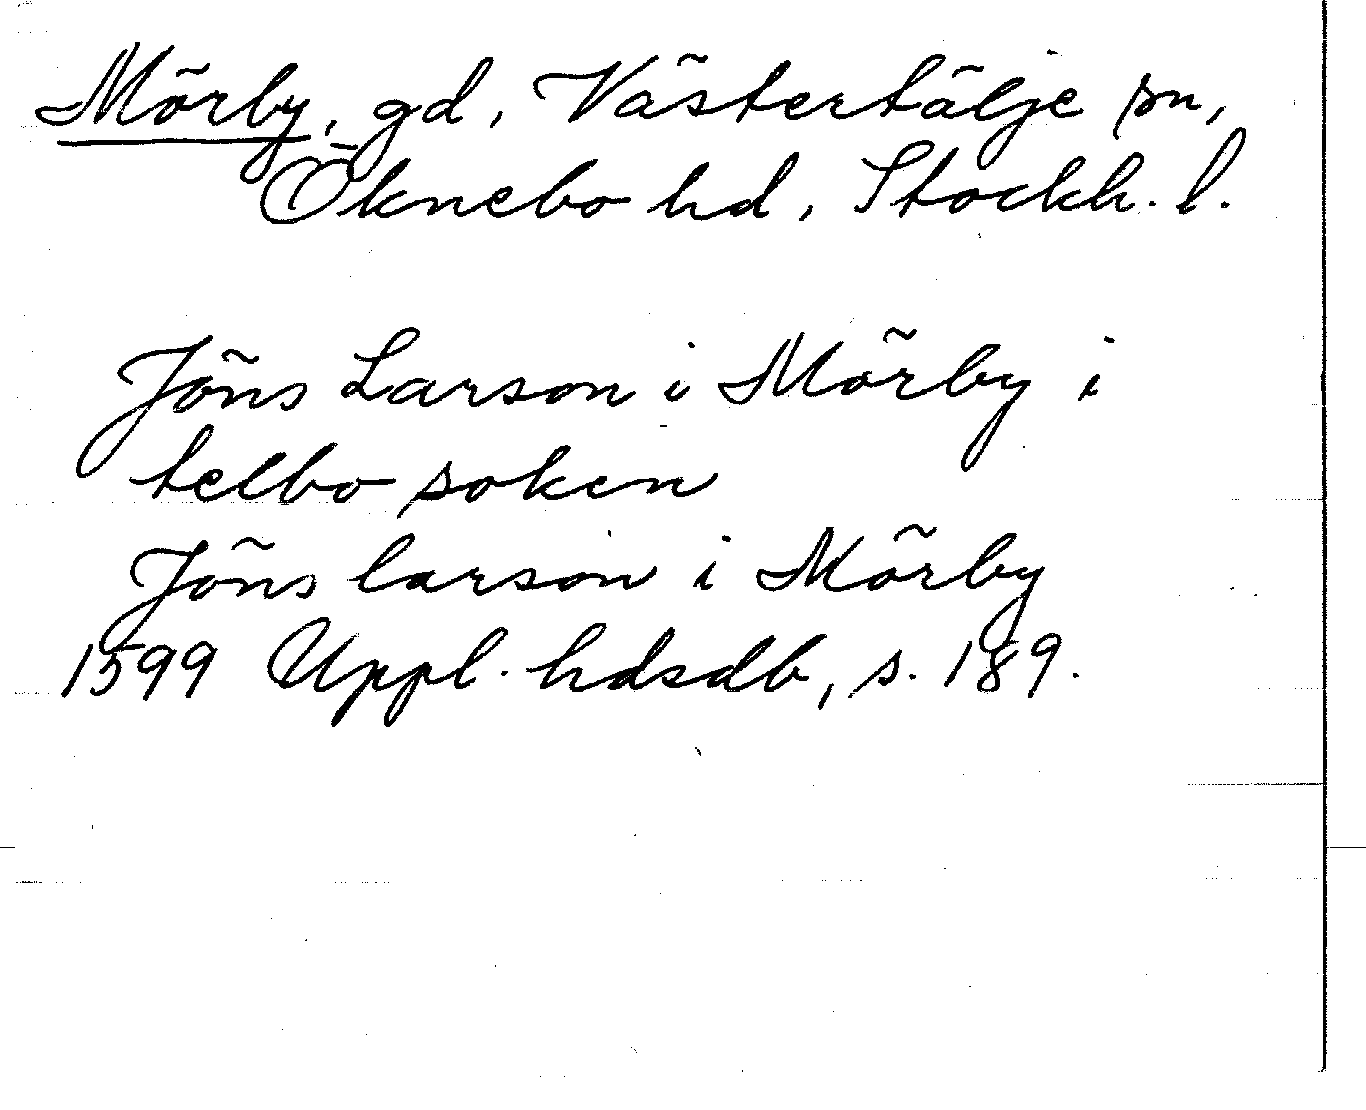 Mörby, gd, Västertälje sn,
Öknebo hd, Stockh. l.
Jöns Larson i Mörby i
telbo soken
Jöns larson i Mörby
1599 Uppl. hdsdb, s. 189.